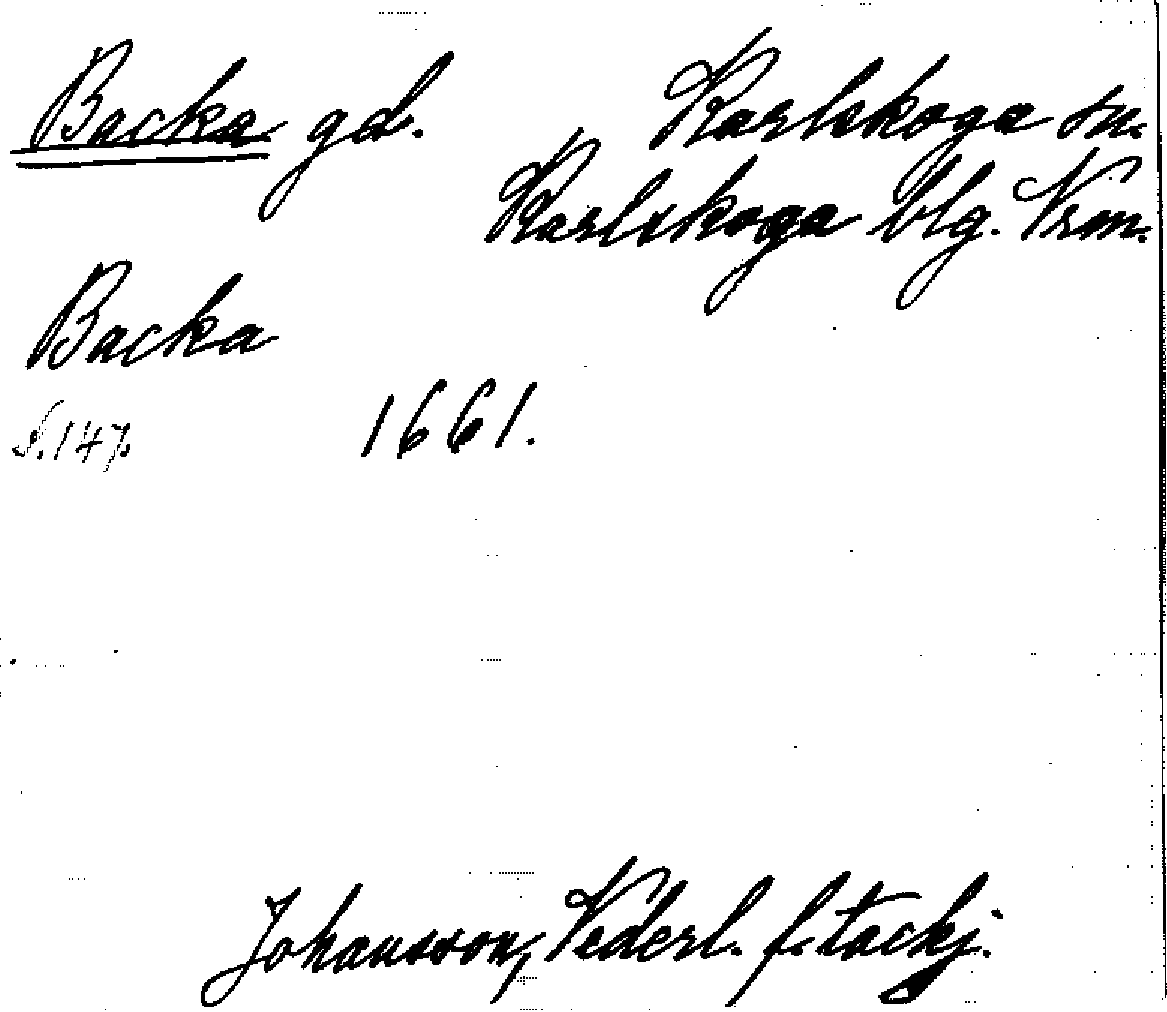 Backa gd. Karlskoga sn.
Karlskoga blg. Värm.
Backa
S. 147. 1661.
Johansson, Vederl. f. tackj.